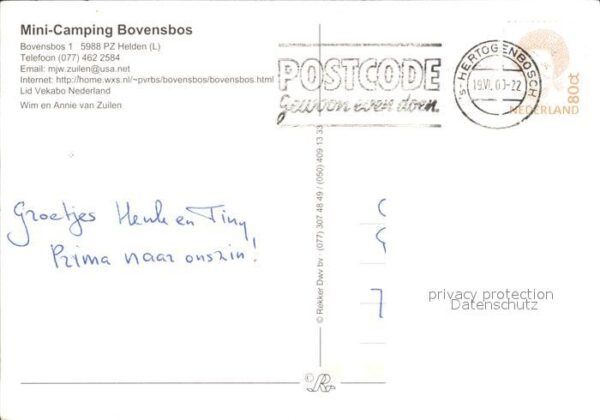 Mini-Camping Bovensbos
Bovensbos 1 5988 PZ Helden (L)
Telefoon (077) 462 2584
Email: mjw.zuilen@usa.net
Internet: http://home.wxs.nl/~pvrbs/bovensbos/bovensbos.html
Lid Vekabo Nederland
Wim en Annie van Zuilen
POSTCODE
gewoon even doen.
's-HERTOGENBOSCH
19.VI.
-22
80ct
NEDERLAND
Groetjes Henk en Tiny
Prima naar onszin!
© Rekker Dwv bv (077) 307 48 49 / (050) 409 13 33
privacy protection
Datenschutz
©R